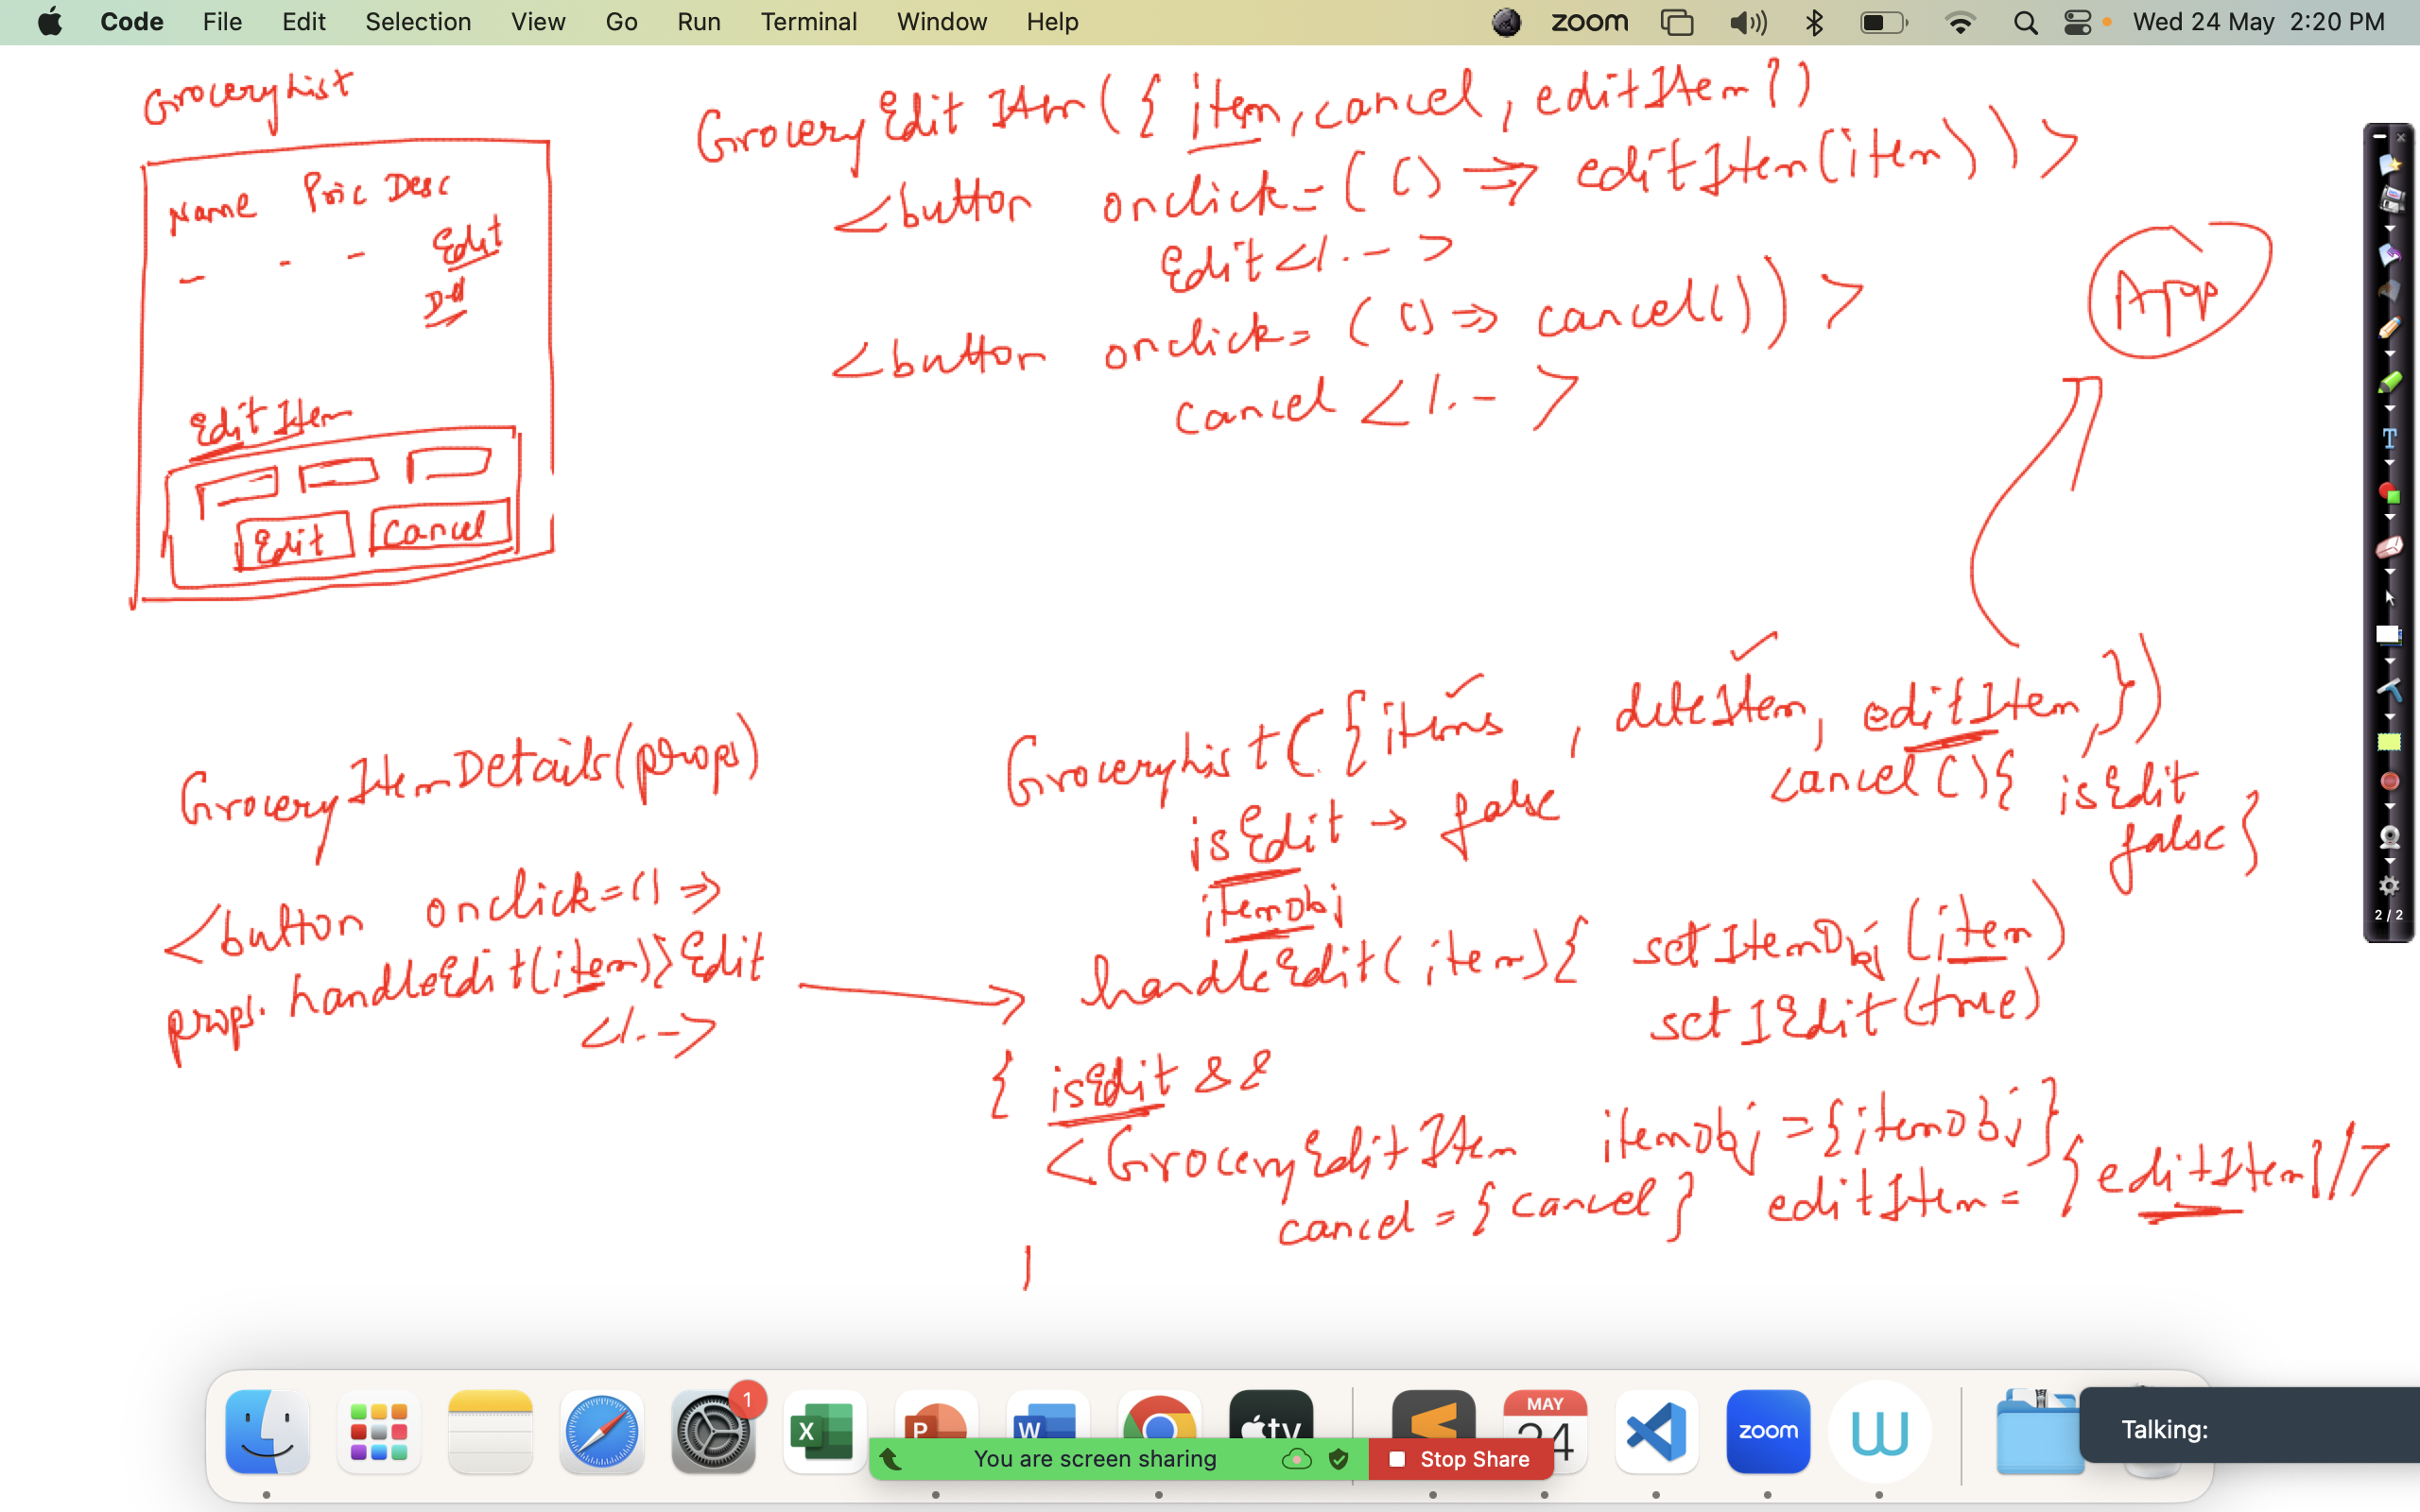 Code File Edit Selection View Go Run Terminal Window Help zoom Wed 24 May 2:20 PM
GroceryList
Name Pric Desc
Edit
Del
EditItem
Edit Cancel
GroceryEditItem({item, cancel, editItem})
<button onclick=(() => editItem(item))>
Edit</-->
<button onclick=(() => cancel())>
cancel</-->
App
GroceryItemDetails(props)
<button onclick=() =>
props.handleEdit(item)}Edit
</-->
GroceryList({items, deleteItem, editItem,})
cancel(){ isEdit
false}
isEdit → false
itemObj
handleEdit(item){ setItemObj(item)
setIEdit(true)
{ isEdit &&
<GroceryEditItem itemObj={itemObj}
cancel={cancel} editItem={editItem}/>
2/2
1
X
P
W
tv
MAY
24
zoom
You are screen sharing
Stop Share
Talking: